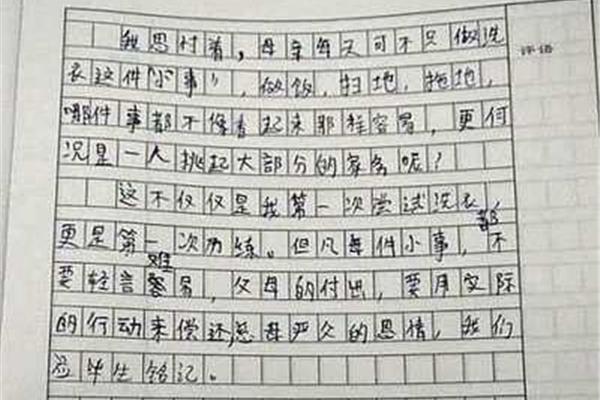 评语
我思忖着，母亲每天可不只做洗
衣这件“小事”，做饭，扫地，拖地，
哪件事都不像看起来那样容易，更何
况是一人挑起大部分的家务呢？
这不仅仅是我第一次尝试洗衣，
更是第一次历练。但凡每件小事，都不
要轻言难易，父母的付出，要用实际
的行动来偿还，慈母严父的恩情，我们
应毕生铭记。